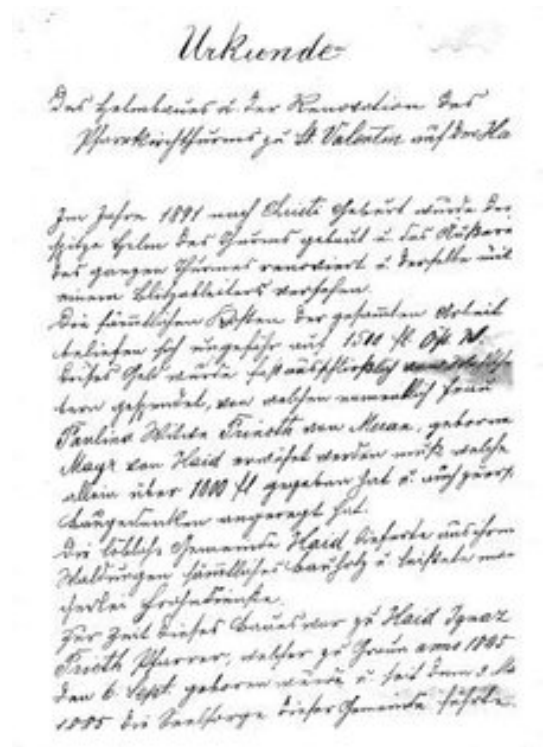 Urkunde
des Helmbaues u. der Renovation des
Pfarrkirchthurms zu St. Valentin auf der Ha
Im Jahre 1891 nach Christi Geburt wurde der
spitze Helm des Thurms gebaut u. das Äußere
des ganzen Thurmes renoviert u. derselbe mit
einem Blitzableiters versehen.
Die sämmtlichen Kosten der gesammten Arbeit
beliefen sich ungefähr auf 1500 fl. Öst. W.
dieses Geld wurde fast ausschließlich von
tern gespendet, von welchen namentlich Frau
Paulina Witwe von Meran, geborne
Mayr von Haid erwähnt werden muß welche
allein über 1000 fl gegeben hat u. auch zuerst
Baugedanken angeregt hat.
Die löbliche Gemeinde Haid lieferte aus ihren
Waldungen sämmtliches Bauholz u. leistete man
cherlei Frohndienste.
Zur Zeit dieses Baues war zu Haid Ignaz
Pfarrer, welcher zu Graun anno
den 6. Sept. geboren wurde u. seit dem
1885 die Seelsorge dieser Gemeinde führte.